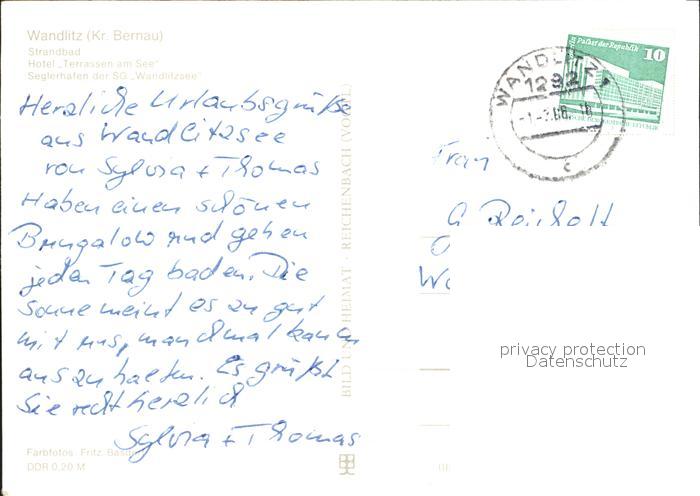 Wandlitz (Kr. Bernau)
Strandbad
Hotel „Terrassen am See"
Seglerhafen der SG „Wandlitzsee"
Herzliche Urlaubsgrüße
aus Wandlitzsee
von Sylvia + Thomas
Haben einen schönen
Bungalow und gehen
jeden Tag baden. Die
Sonne meint es zu gut
mit uns, manchmal kaum
auszuhalten. Es grüßt
Sie recht herzlich
Sylvia + Thomas
Farbfotos: Fritz,
DDR 0,20 M
BILD UND HEIMAT · REICHENBACH (VOGTL)
WANDLITZ
1292
c
Palast der Republik
10
Frau
privacy protection
Datenschutz